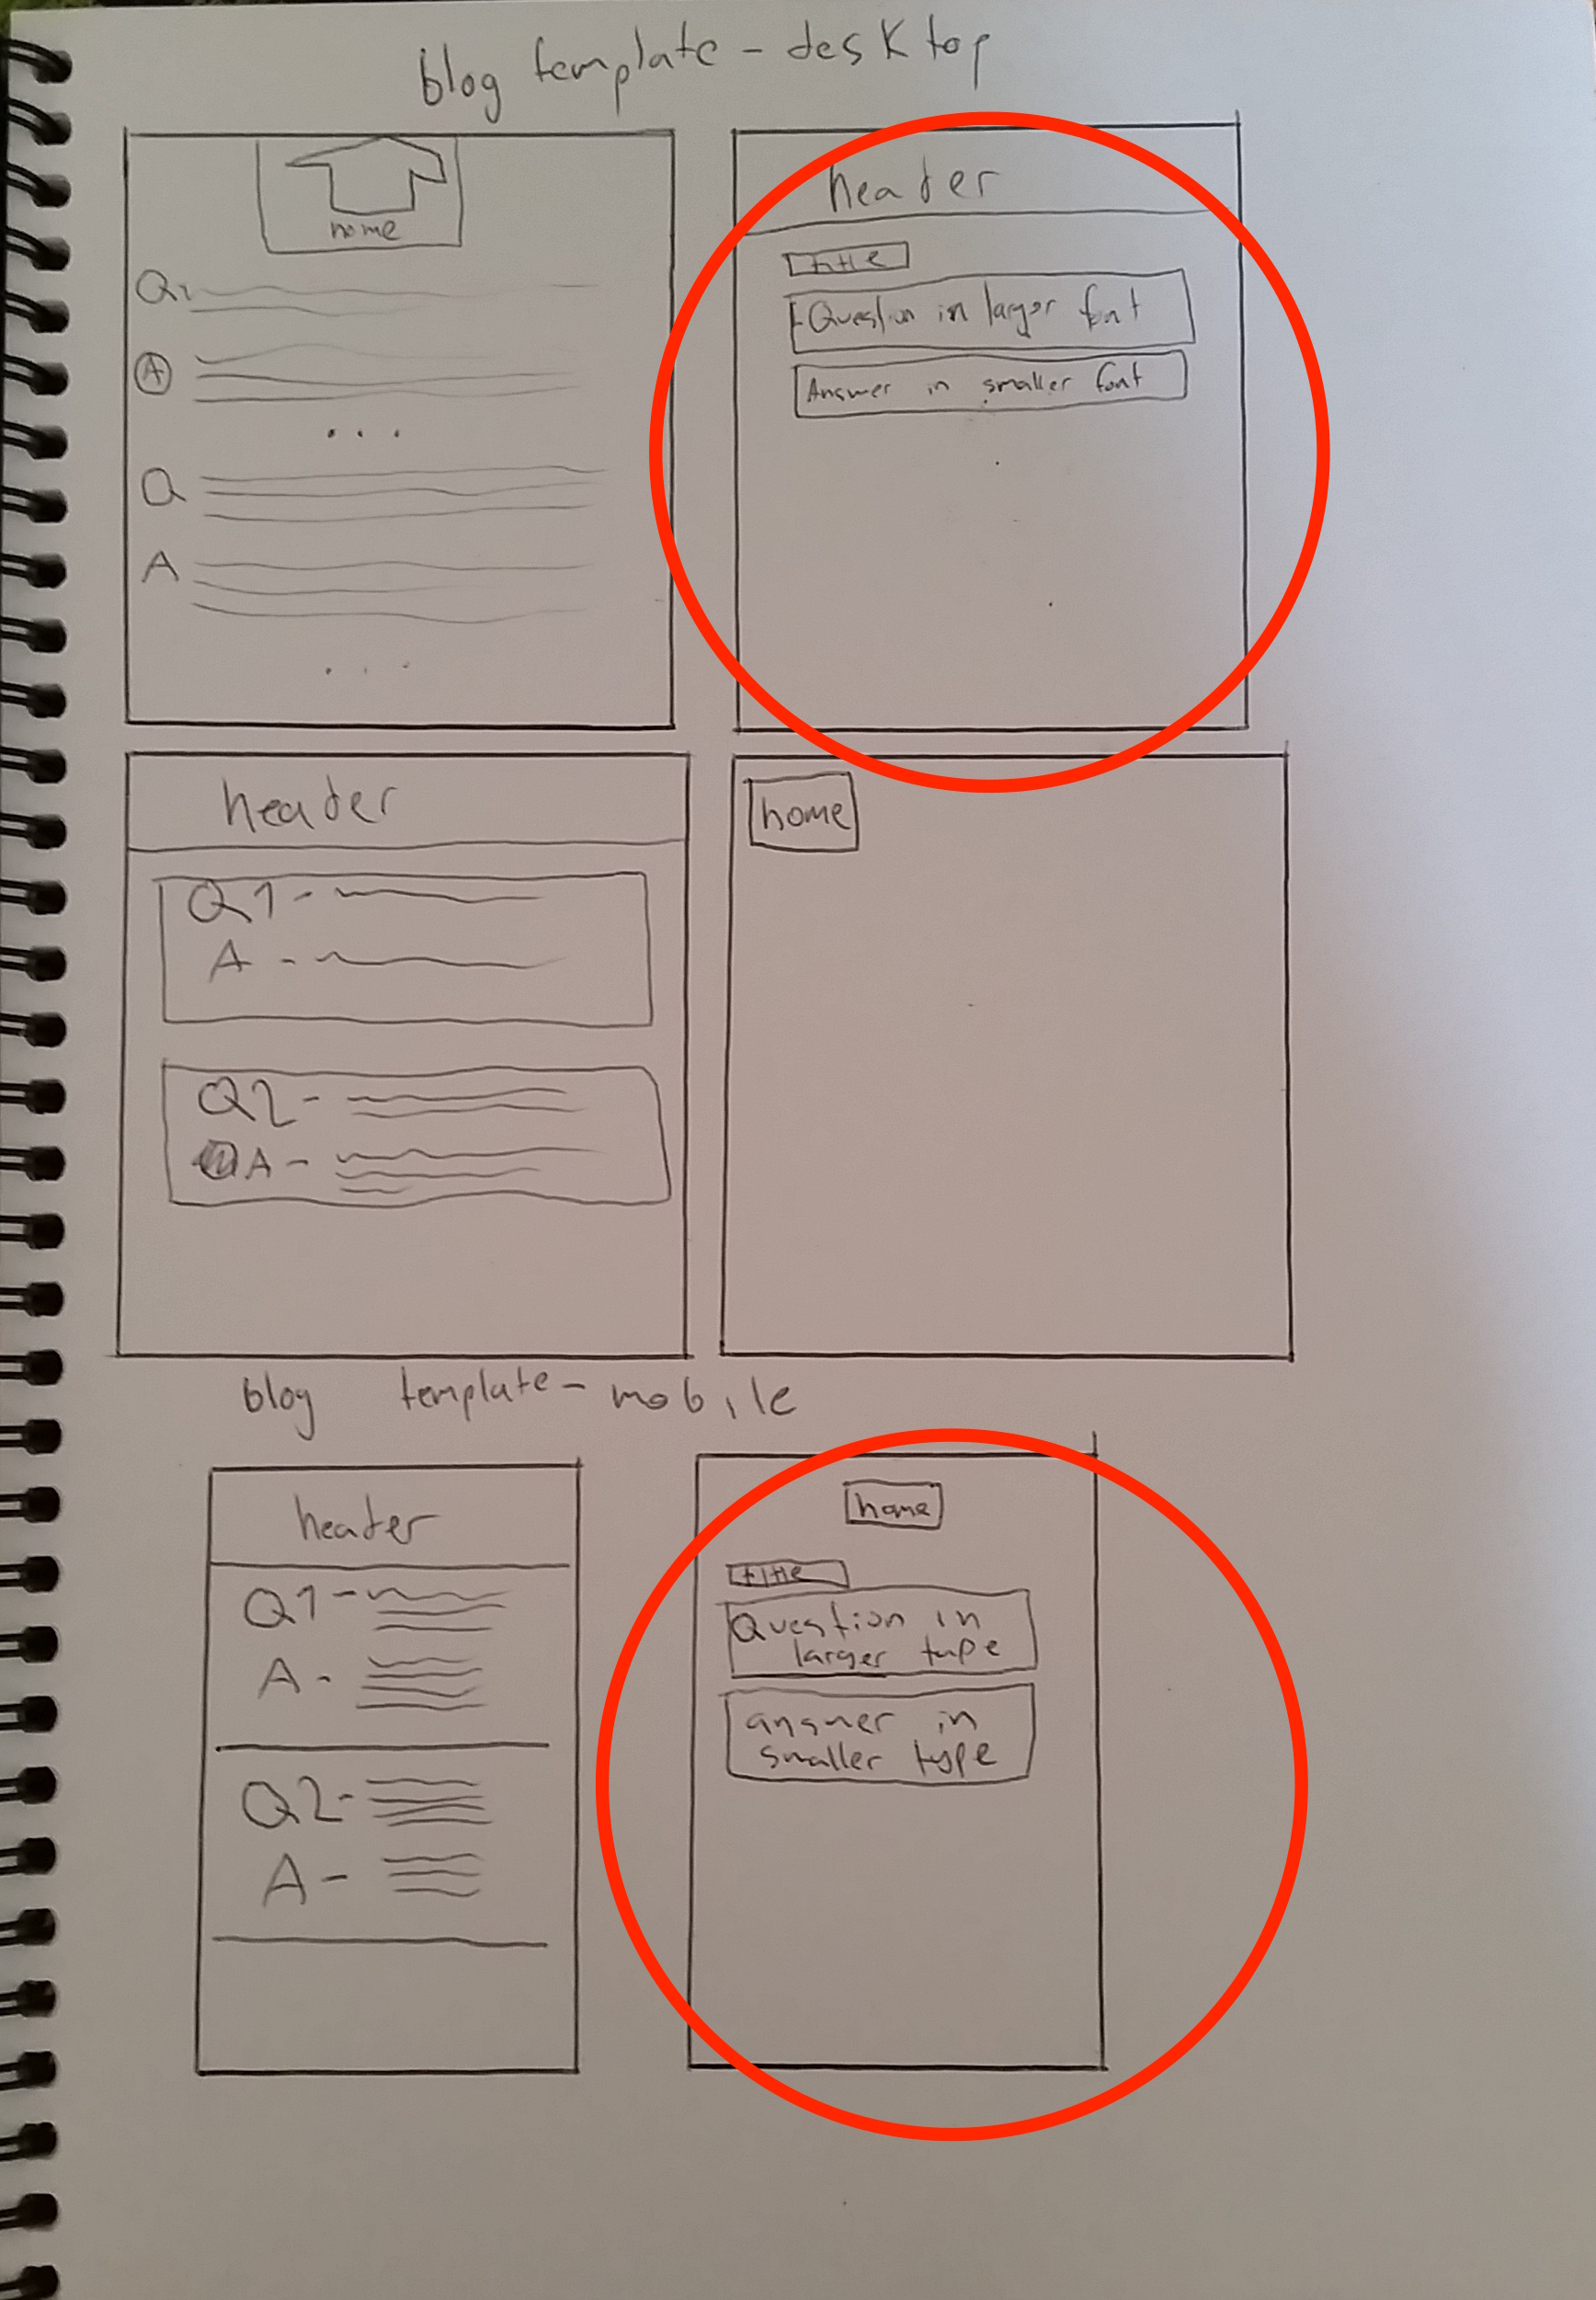 blog template - desktop
home
Q1
A
...
Q
A
...
header
title
Question in larger font
Answer in smaller font
header
Q1 -
A -
Q2 -
A -
home
blog template - mobile
header
Q1 -
A -
Q2 -
A -
home
title
Question in
larger type
answer in
smaller type